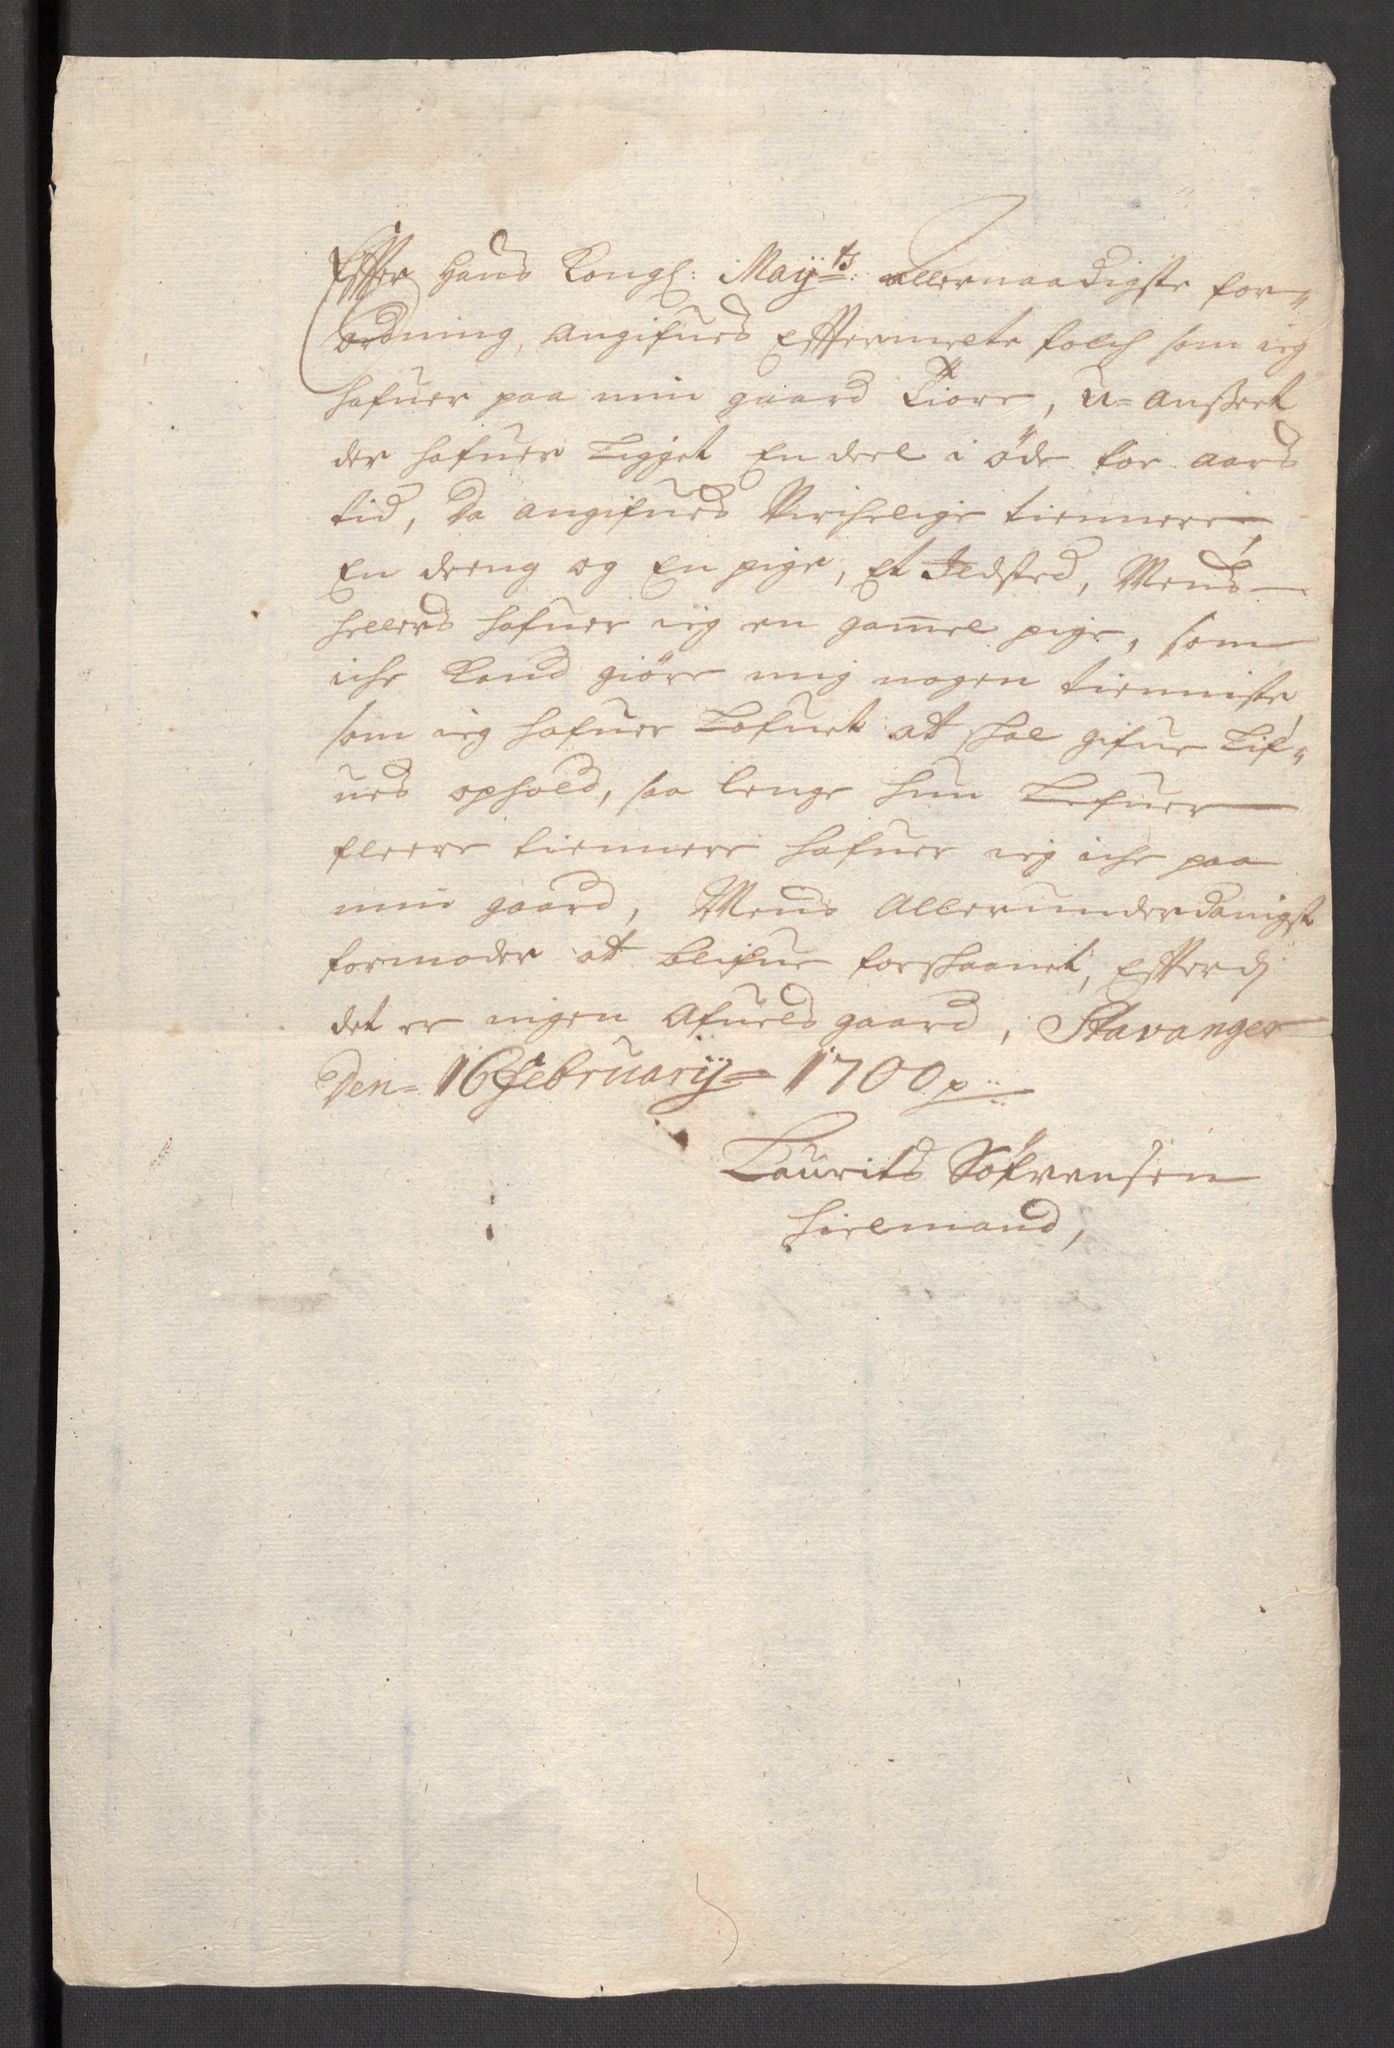 Effter Hans Kongl: Maÿts: allernaadigste for=
ordning, angifues Effermelte folch som ieg
hafuer paa min gaard Tiore, u=anseet
der hafuer Ligget En deel i öde for aars
tid, da angifues Virchelige tiennere
En dreng og En pige, Et Ildsted, Mens
hellers hafuer ieg en gamel pige, som
iche kand giöre mig nogen tienniste
som ieg hafuer Lofuet at skal gifue Lif=
ues ophold, saa lenge hun Lefuer
fleere tiennere hafuer ieg iche paa
min gaard, Mens Allerunderdanigst
formoder at blifue forskaanet, Efferdj
det er ingen Afuels gaard, Stavanger
Den= 16 Februarÿ= 1700 p
Laurits Söfrensen